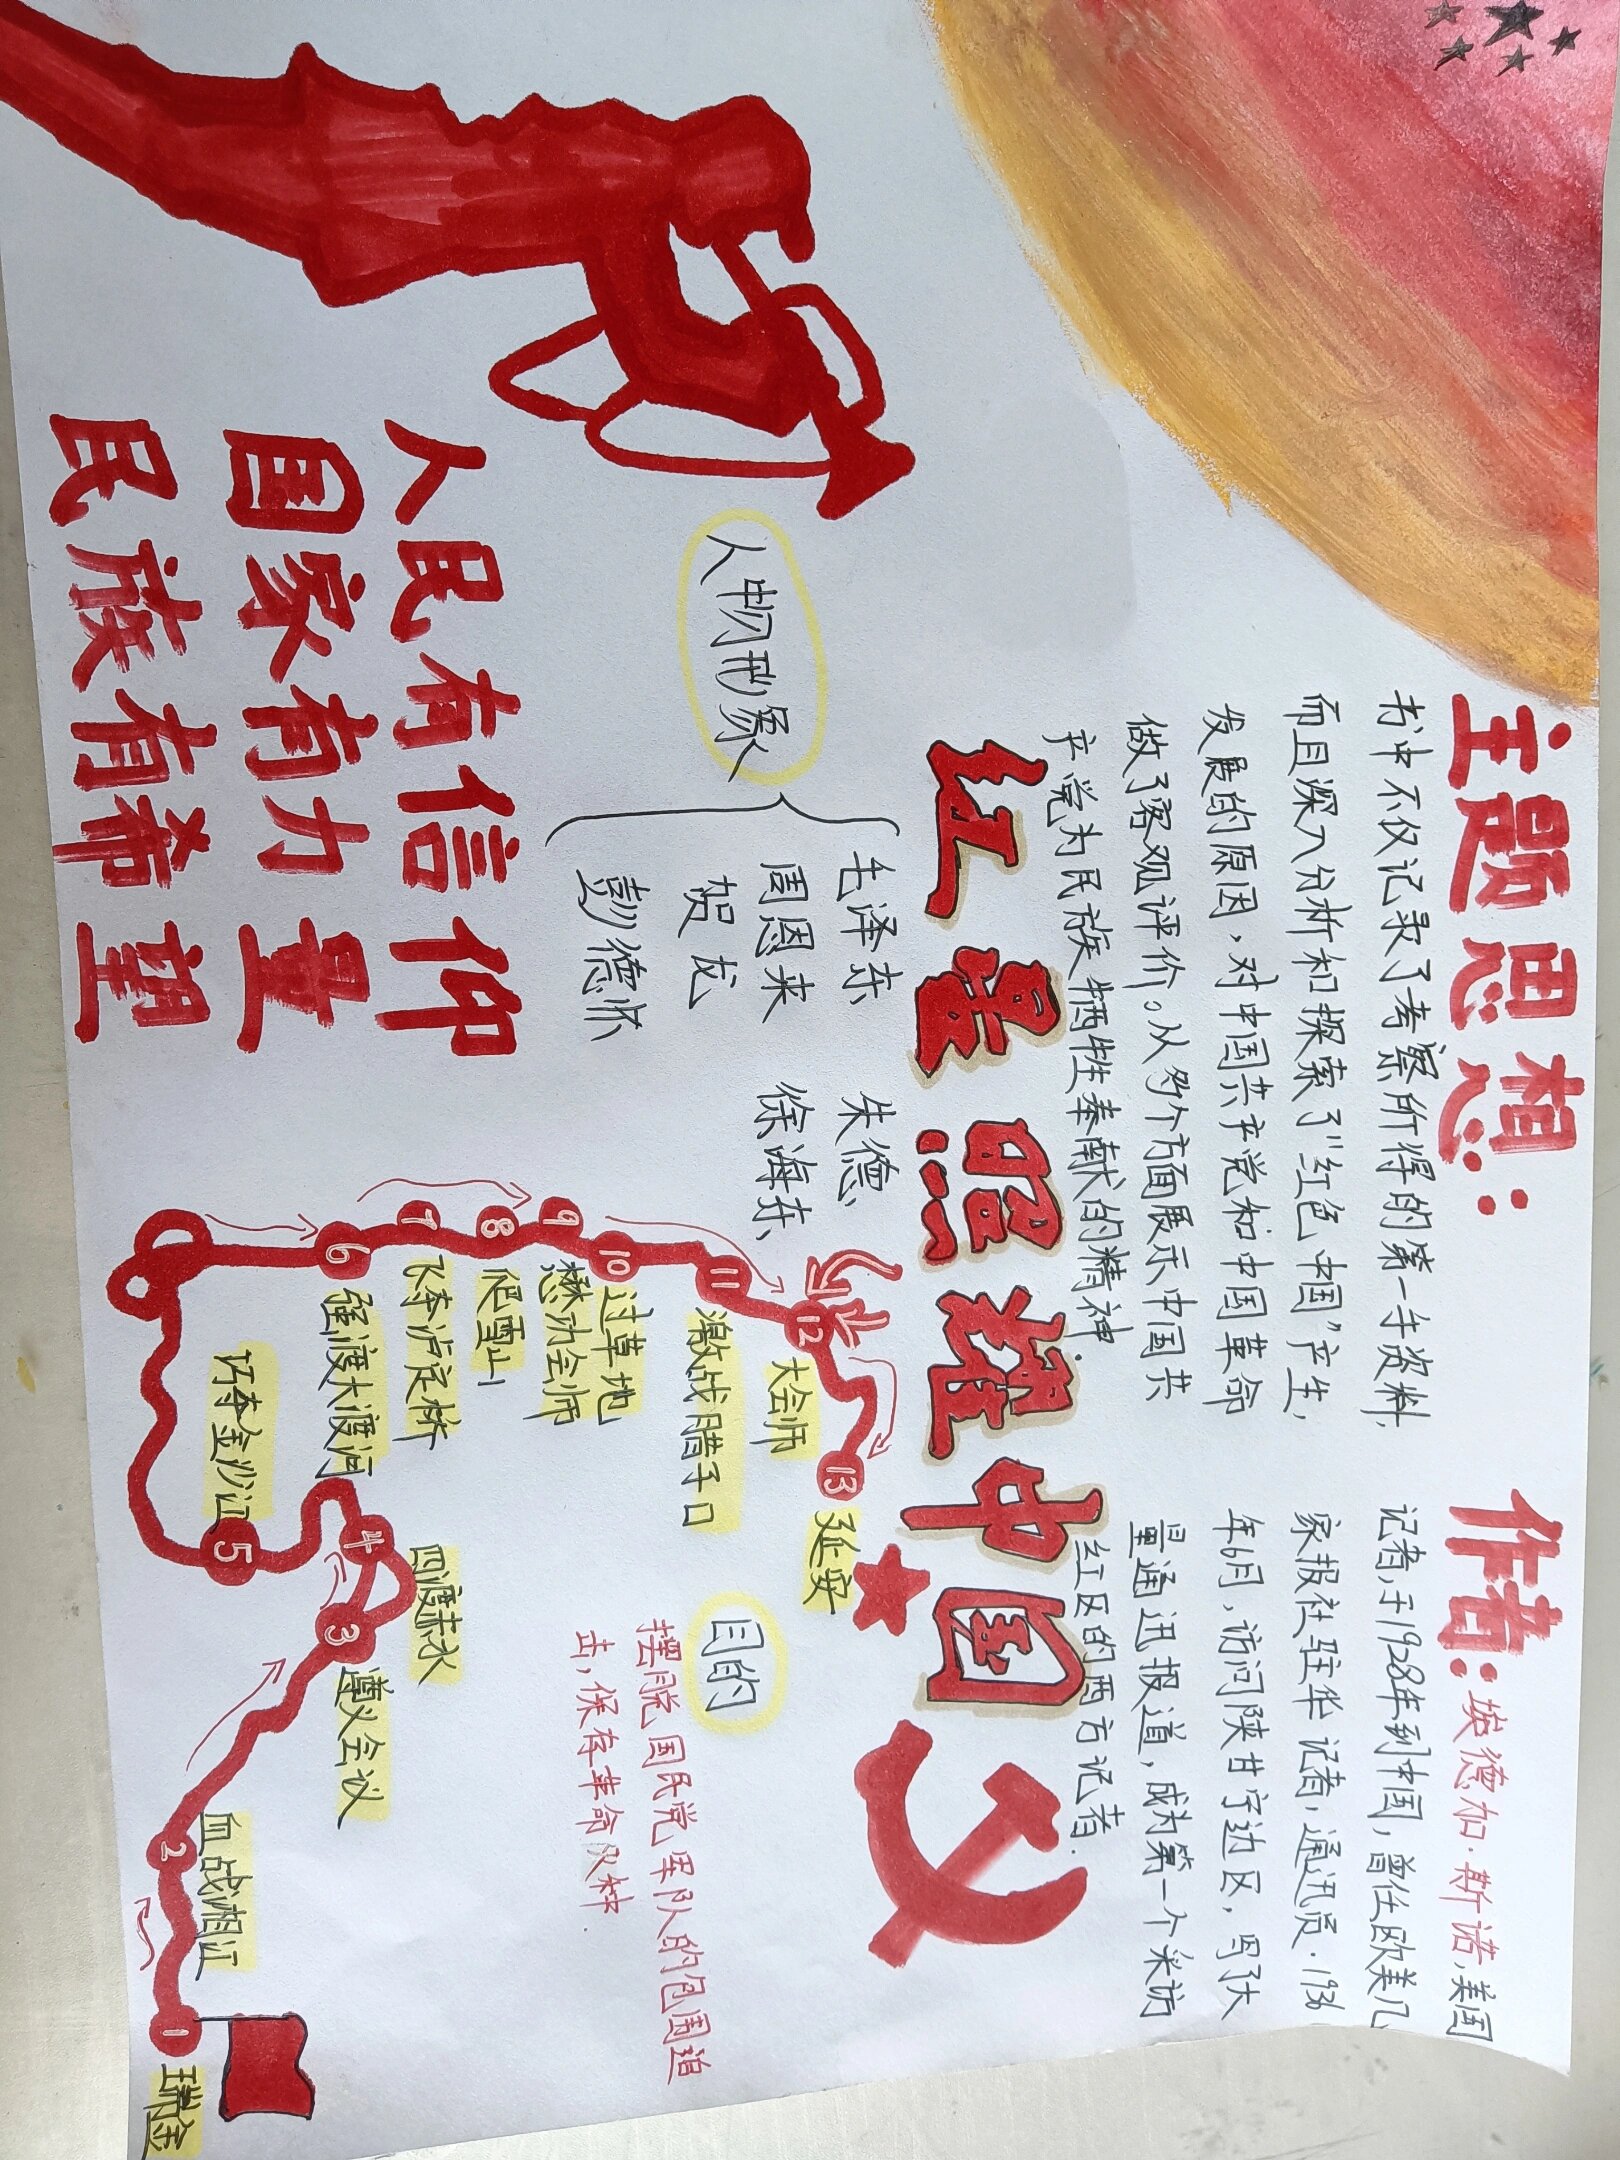 主题思想:
书中不仅记录了考察所得的第一手资料,
而且深入分析和探索了"红色中国"产生,
发展的原因,对中国共产党和中国革命
做了客观评价。从多个方面展示中国共
产党为民族牺牲奉献的精神.
作者:埃德加·斯诺,美国
记者,于1928年到中国,曾任欧美几
家报社驻华记者,通讯员.1936
年6月,访问陕甘宁边区,写了大
量通迅报道,成为第一个采访
红区的西方记者.
红星照耀中国
人物形象
毛泽东 朱德、
周恩来 徐海东、
贺龙
彭德怀
人民有信仰
国家有力量
民族有希望
目的
摆脱国民党军队的包围追
击,保存革命火种.
1 瑞金
2 血战湘江
3 遵义会议
4 四渡赤水
5 巧夺金沙江
6 强渡大渡河
7 飞夺泸定桥
8 爬雪山
9 懋功会师
10 过草地
11 激战腊子口
12 大会师
13 延安